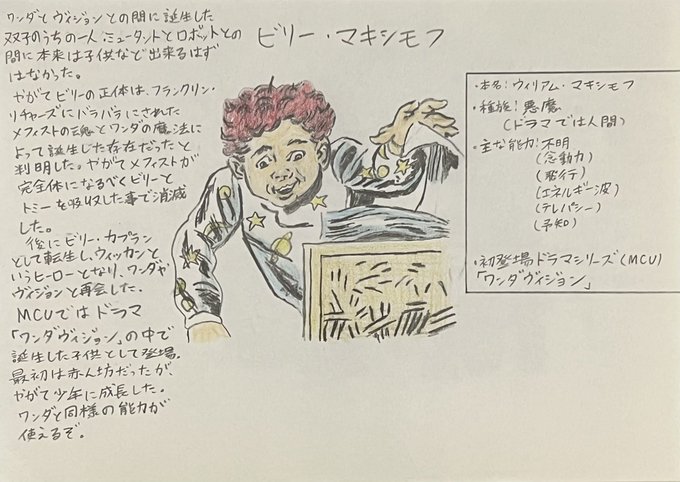 ワンダとヴィジョンとの間に誕生した
双子のうちの一人。ミュータントとロボットとの
間に本来は子供など出来るはず
はなかった。
やがてビリーの正体は、フランクリン・
リチャーズにバラバラにされた
メフィストの魂とワンダの魔法に
よって誕生した存在だったと
判明した。やがてメフィストが
完全体になるべくビリーと
トミーを吸収した事で消滅
した。
後にビリー・カプラン
として転生し、ウィッカンと
いうヒーローとなり、ワンダや
ヴィジョンと再会した。
MCUではドラマ
「ワンダヴィジョン」の中で
誕生した子供として登場。
最初は赤ん坊だったが、
やがて少年に成長した。
ワンダと同様の能力が
使えるぞ。
ビリー・マキシモフ
・本名:ウィリアム・マキシモフ
・種族:悪魔
(ドラマでは人間)
・主な能力:不明
(念動力)
(飛行)
(エネルギー波)
(テレパシー)
(予知)
・初登場ドラマシリーズ(MCU)
「ワンダヴィジョン」